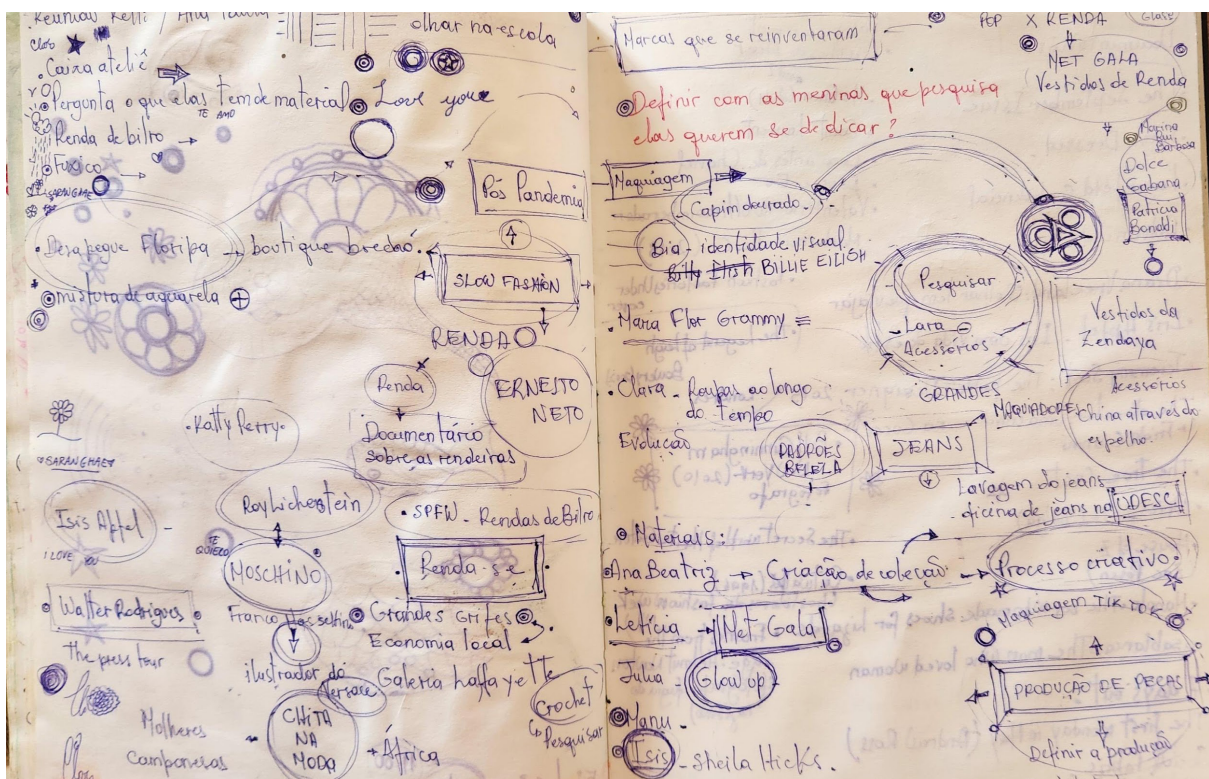 Reunião Kelli / Ana Paula
olhar na escola
Caixa ateliê
Pergunta o que elas tem de material
TE AMO
Love you
Renda de bilro
Fuxico
SARANGHAE
Pós Pandemia
Desapegue Floripa → boutique brechó
SLOW FASHION
mistura de aquarela
RENDA
Renda
ERNESTO
NETO
Katty Perry
Documentário
sobre as rendeiras
SARANGHAE
Roy Lichenstein
SPFW - Rendas de Bilro
Isis Affel -
I LOVE YOU
TE QUIERO
MOSCHINO
Renda-se
Walter Rodrigues
Franco
Grandes Grifes
Economia local
The press tour
ilustrador da
Versace
Galeria Laffayette
Crochet
Pesquisar
Molheres
Camponesas
CHITA
NA
MODA
África
Marcas que se reinventaram
POP X RENDA
NET GALA
Vestidos de Renda
Definir com as meninas que pesquisa
elas querem se dedicar?
Marina
Rui
Barbosa
Dolce
Gabana
Patricia
Bonaldi
Maquiagem
Capim dourado
Bia - identidade visual
BILLIE EILISH
Pesquisar
Lara -
Acessórios
Vestidos da
Zendaya
Maria Flor Grammy
Clara - Roupas ao longo
do tempo
Evolução
GRANDES
MAQUIADORES
Acessórios
China através do
espelho
PADRÕES
BELEZA
JEANS
Lavagem do jeans
oficina de jeans na UDESC
Materiais:
Ana Beatriz → Criação de coleção → Processo criativo
Letícia → Met Gala
Maquiagem TIK TOK
Julia - Glow up
PRODUÇÃO DE PEÇAS
Manu -
Isis - Sheila Hicks.
Definir a produção